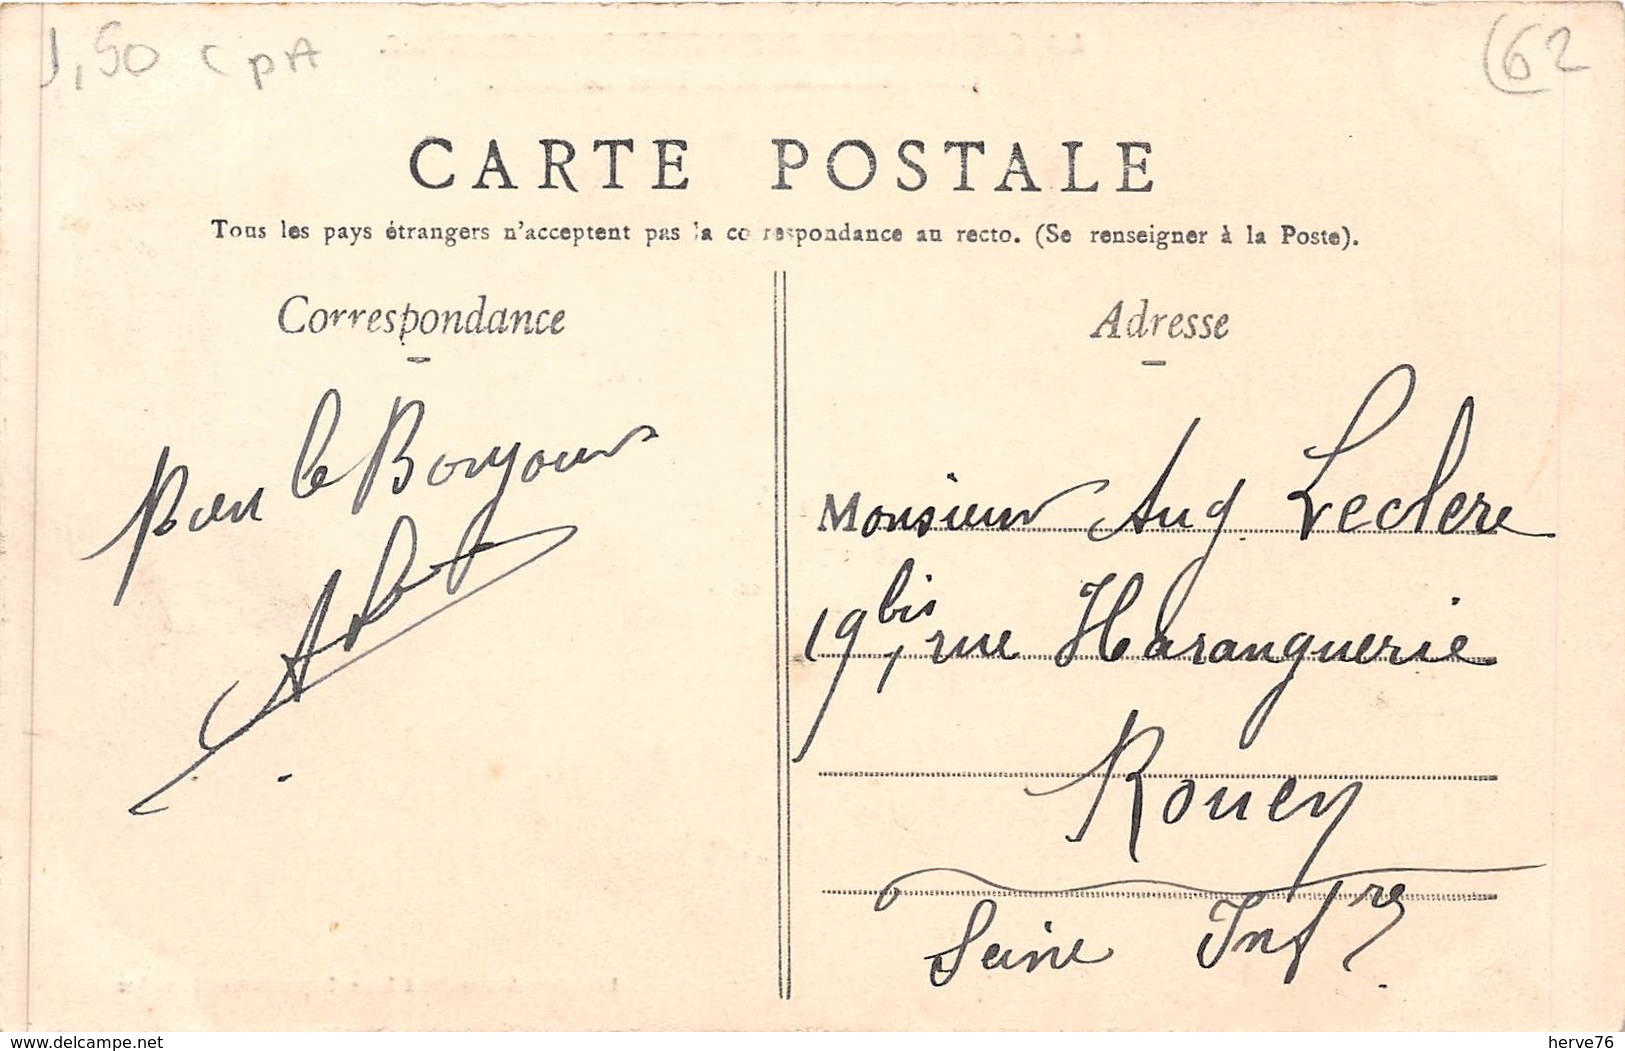 1,50 CPA
62
CARTE POSTALE
Tous les pays étrangers n'acceptent pas la correspondance au recto. (Se renseigner à la Poste).
Correspondance
le Bonjour
Adresse
Monsieur Aug Leclere
19 bis, rue Haranguerie
Rouen
Seine Infre
www.delcampe.net
herve76